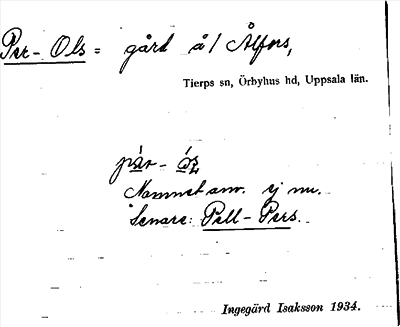 Per-Ols = gård å/ Ålfors,
Tierps sn, Örbyhus hd, Uppsala län.
pär- ós
Namnet anv. ej nu.
Senare: Pell-Pers.
Ingegärd Isaksson 1934.